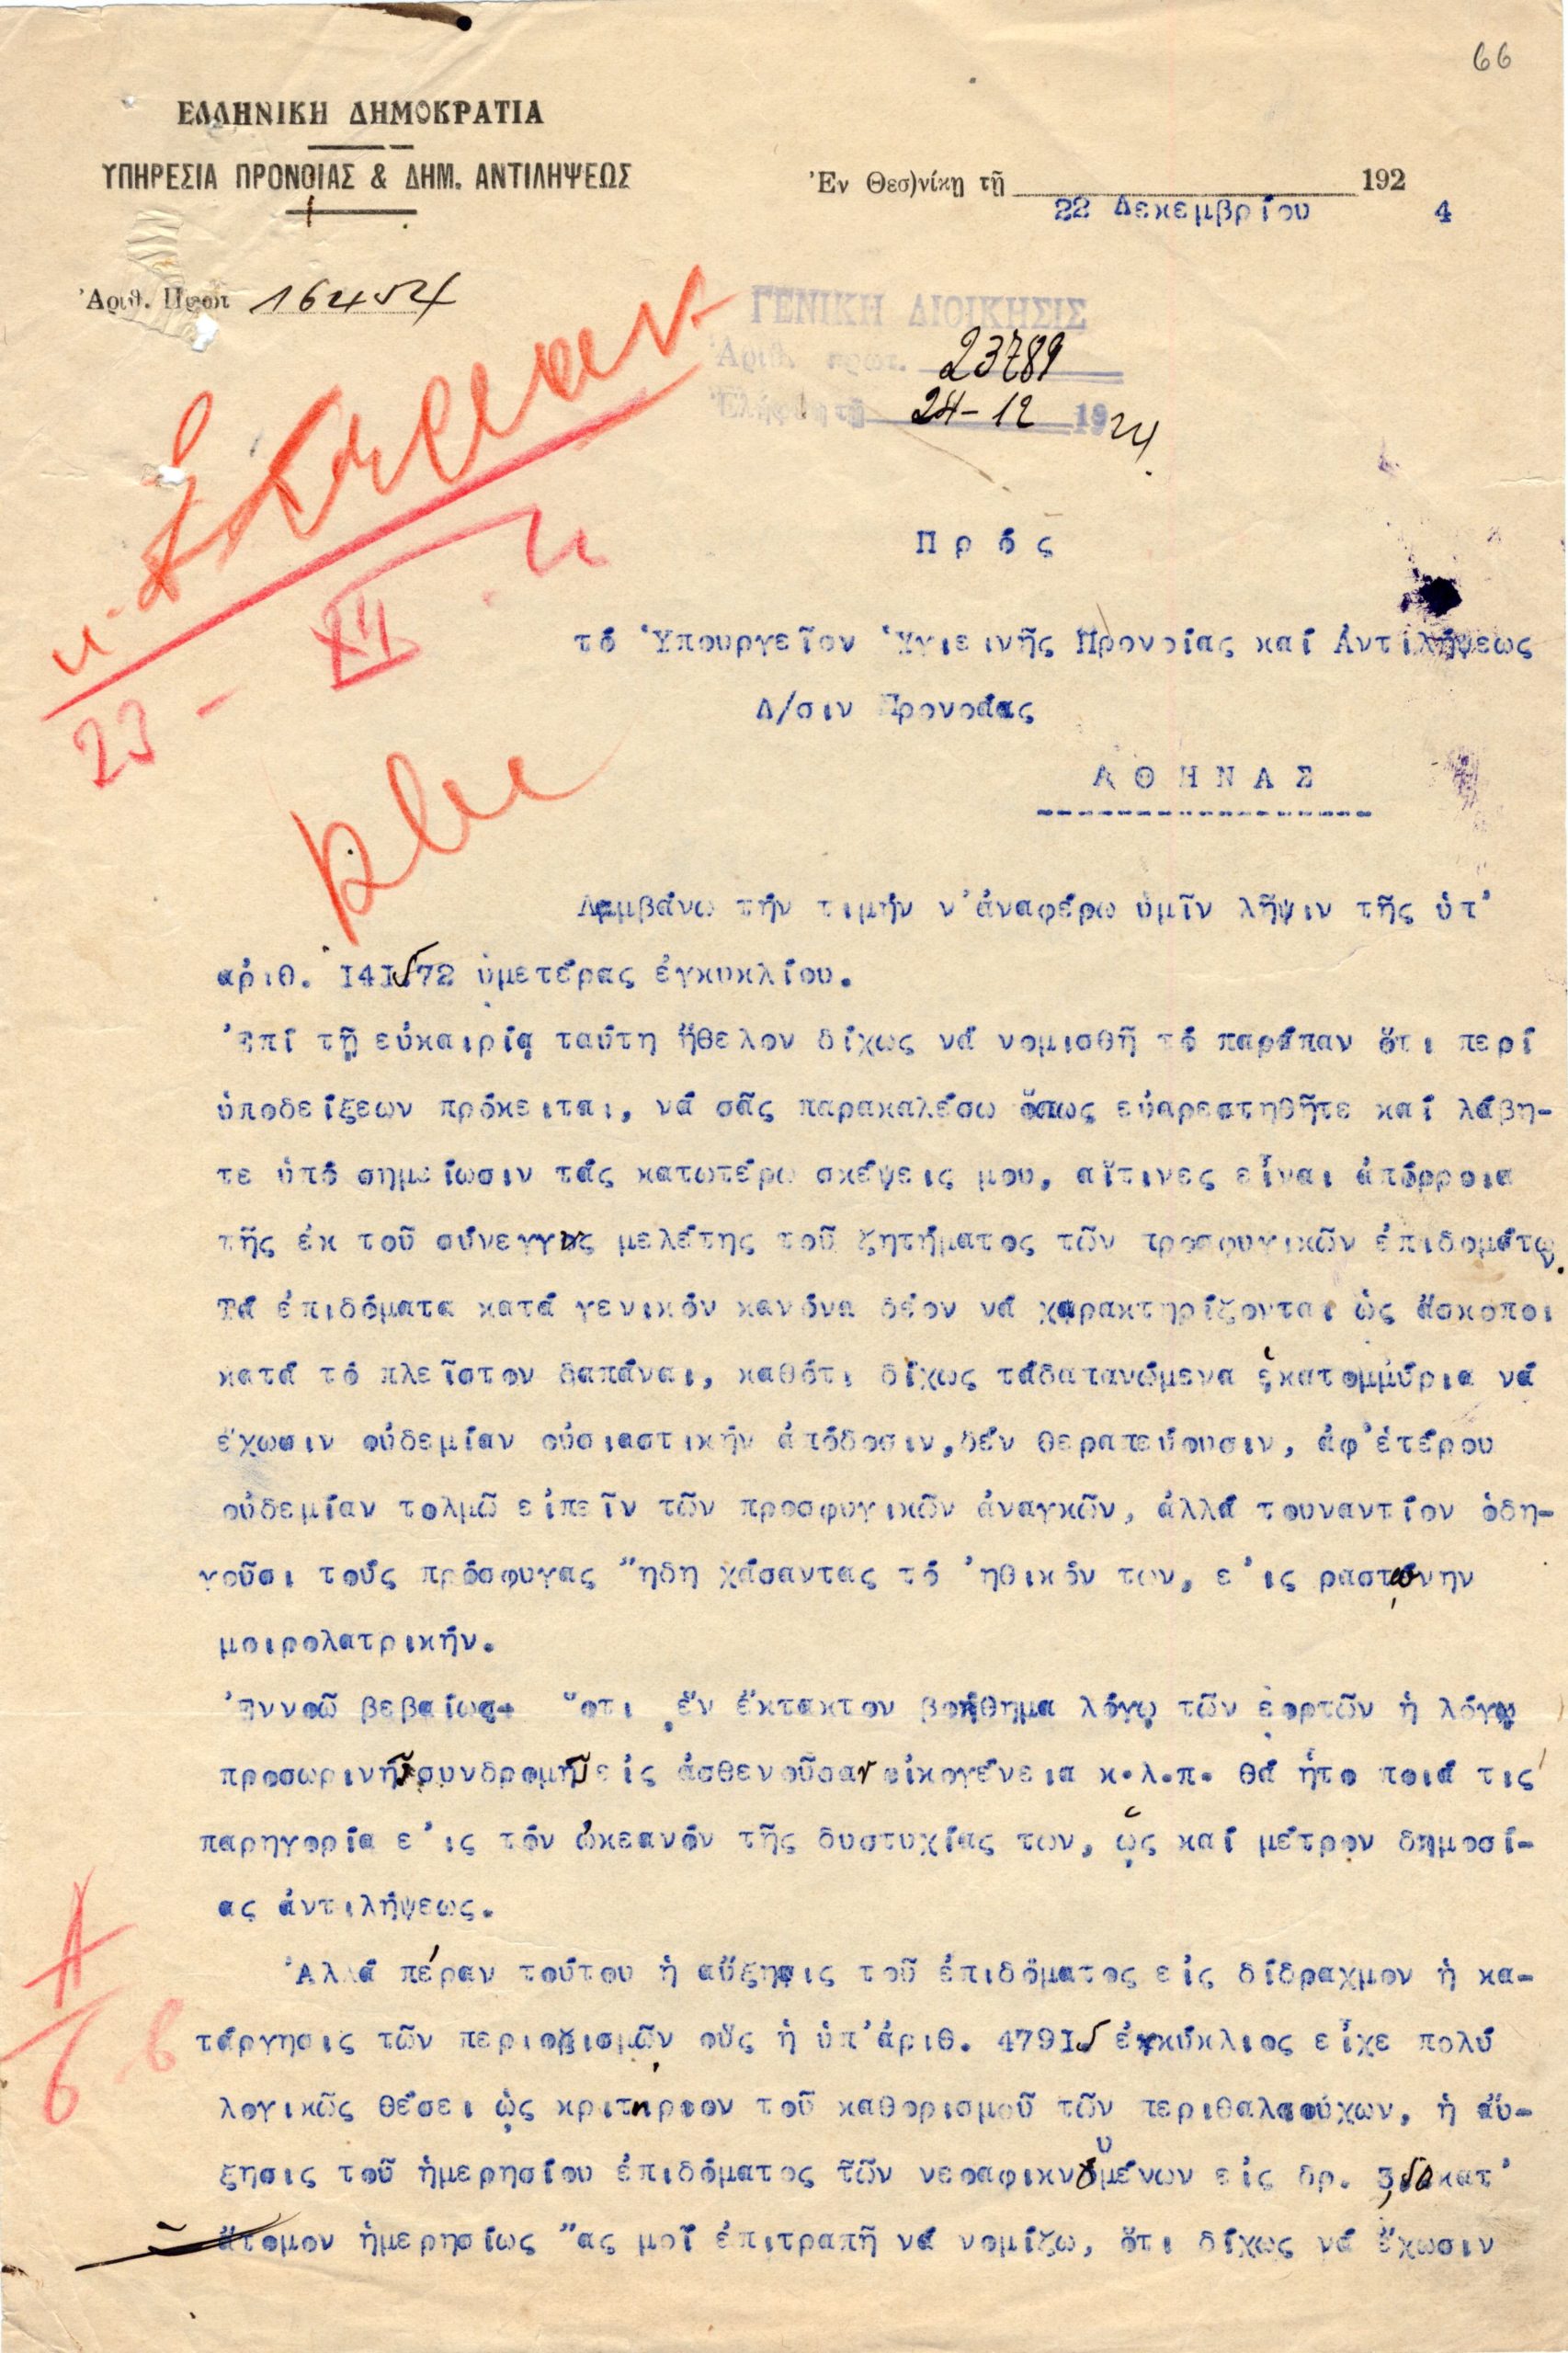 66
ΕΛΛΗΝΙΚΗ ΔΗΜΟΚΡΑΤΙΑ
ΥΠΗΡΕΣΙΑ ΠΡΟΝΟΙΑΣ & ΔΗΜ. ΑΝΤΙΛΗΨΕΩΣ
Ἐν Θεσ)νίκη τῇ 22 Δεκεμβρίου 1924
Ἀριθ. Πρωτ 16454
ΓΕΝΙΚΗ ΔΙΟΙΚΗΣΙΣ
Ἀριθ. πρωτ. 23789
Ἐλήφθη τῇ 24-12 1924
23 - XII
Πρός
τό Ὑπουργεῖον Ὑγιεινῆς Προνοίας καί Ἀντιλήψεως
Δ/σιν Προνοίας
ΑΘΗΝΑΣ
Λαμβάνω τήν τιμήν ν'ἀναφέρω ὑμῖν λῆψιν τῆς ὑπ'
ἀριθ. 141572 ὑμετέρας ἐγκυκλίου.
Ἐπί τῇ εὐκαιρίᾳ ταύτη ἤθελον δίχως νά νομισθῆ τό παράπαν ὅτι περί
ὑποδείξεων πρόκειται, νά σᾶς παρακαλέσω ὅπως εὐαρεστηθῆτε καί λάβη-
τε ὑπό σημείωσιν τάς κατωτέρω σκέψεις μου, αἵτινες εἶναι ἀπόρροια
τῆς ἐκ τοῦ σύνεγγυς μελέτης τοῦ ζητήματος τῶν προσφυγικῶν ἐπιδομάτων.
Τά ἐπιδόματα κατά γενικόν κανόνα δέον νά χαρακτηρίζονται ὡς ἄσκοποι
κατά τό πλεῖστον δαπάναι, καθότι δίχως τάδαπανώμενα ἑκατομμύρια νά
ἔχωσιν οὐδεμίαν οὐσιαστικήν ἀπόδοσιν,δέν θεραπεύουσιν, ἀφ'ἑτέρου
οὐδεμίαν τολμῶ εἰπεῖν τῶν προσφυγικῶν ἀναγκῶν, ἀλλά τουναντίον ὁδη-
γοῦσι τούς πρόσφυγας "ηδη χάσαντας τό 'ηθικόν των, ε'ις ραστώνην
μοιρολατρικήν.
Ἐννοῶ βεβαίως "οτι ,ἕν ἔκτακτον βοήθημα λόγῳ τῶν ἑορτῶν ἡ λόγῳ
προσωρινῆς συνδρομῆς εἰς ἀσθενοῦσαν οἰκογένεια κ.λ.π. θά ἦτο ποιά τις
παρηγορία ε'ις τόν ὠκεανόν τῆς δυστυχίας των, ὡς καί μέτρον δημοσί-
ας ἀντιλήψεως.
Ἀλλά πέραν τούτου ἡ αὔξησις τοῦ ἐπιδόματος εἰς δίδραχμον ἡ κα-
τάργησις τῶν περιορισμῶν οὕς ἡ ὑπ'ἀριθ. 47915 ἐγκύκλιος εἶχε πολύ
λογικῶς θέσει ὡς κριτήριον τοῦ καθορισμοῦ τῶν περιθαλπούχων, ἡ αὔ-
ξησις τοῦ ἡμερησίου ἐπιδόματος τῶν νεοαφικνουμένων εἰς δρ. 3,50 κατ'
ἄτομον ἡμερησίως "ας μοί ἐπιτραπῆ νά νομίζω, ὅτι δίχως νά ἔχωσιν